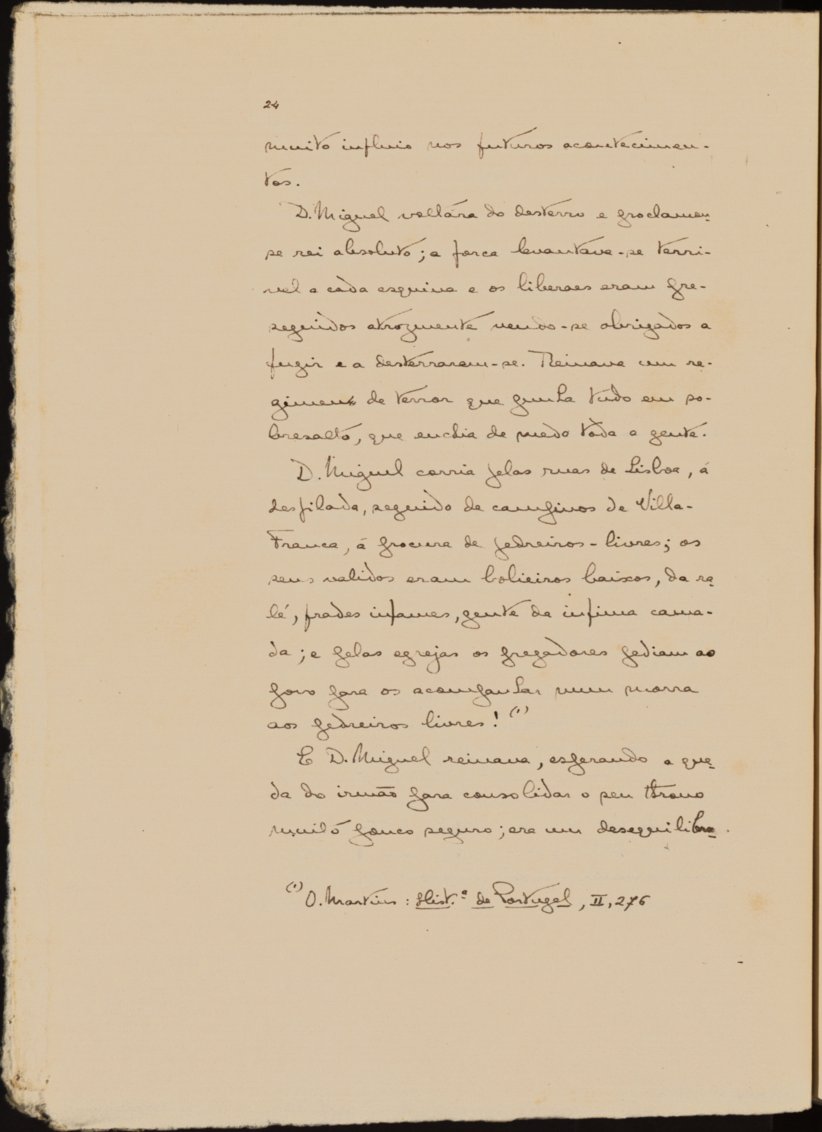 24
muito influio nos futuros acontecimen-
tos.
D. Miguel voltára do desterro e proclamou-
se rei absoluto; a forca levantava-se terri-
vel a cada esquina e os liberaes eram per-
seguidos atrozmente vendo-se obrigados a
fugir e a desterrarem-se. Reinava um re-
gimen de terror que punha tudo em so-
bresalto, que enchia de medo tôda a gente.
D. Miguel corria pelas ruas de Lisboa, á
desfilada, seguido de campinos de Villa-
Franca, á procura de pedreiros-livres; os
seus validos eram bolieiros baixos, da ra-
lé, frades infames, gente da infima cama-
da; e pelas egrejas os pregadores pediam ao
povo para os acompanhar num morra
aos pedreiros livres! (1)
E D. Miguel reinava, esperando a que-
da do irmão para consolidar o seu throno
muito pouco seguro; era um desequilibra-
(1) O. Martins: Hist.ª de Portugal, II, 276